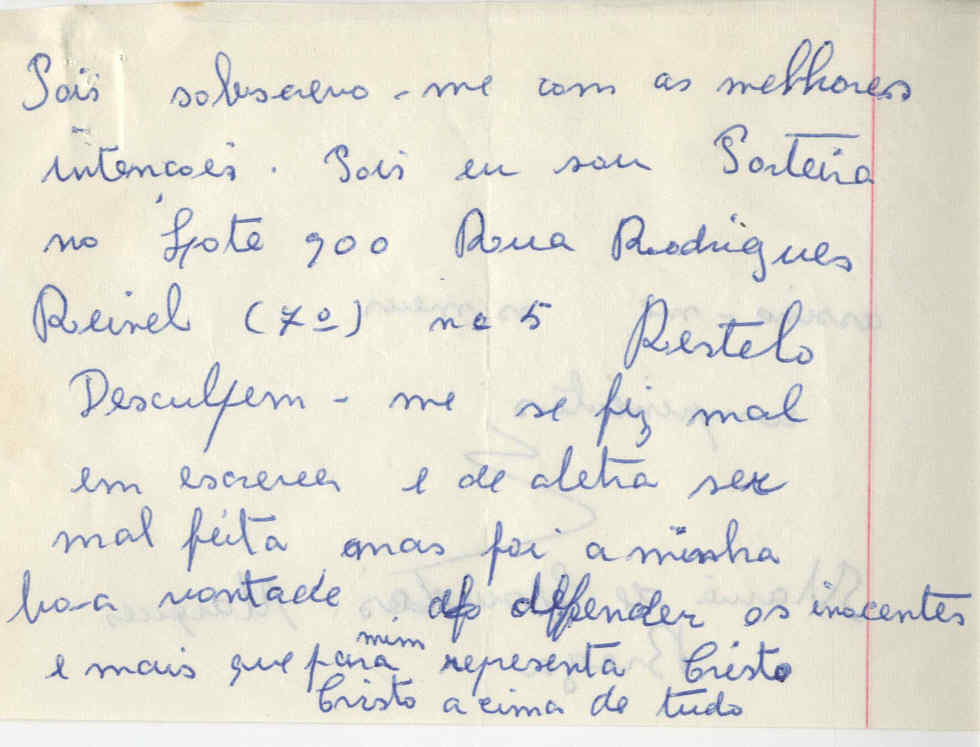 Pois subscrevo-me com as melhores
intencões. Pois eu sou Porteira
no Lote 900 Rua Rodrigues
Reinel (7º) nº 5 Restelo
Desculpem-me se fiz mal
em escrever e de aletra ser
mal feita mas foi a minha
boa vontade de deffender os inocentes
e mais que para mim representa Cristo
Cristo acima de tudo